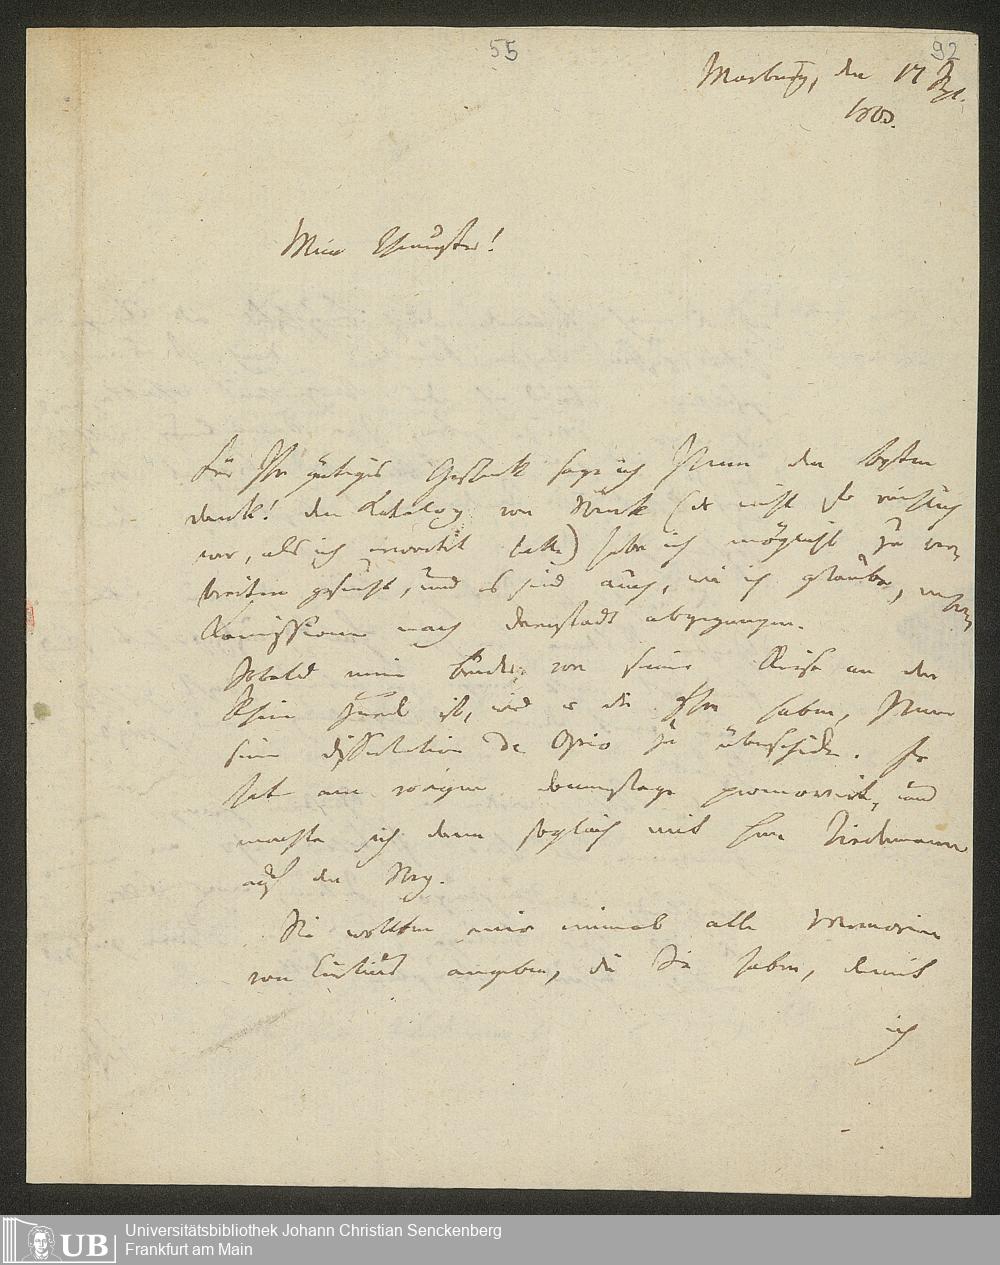 55
92
Marburg, den 17
180
Mein Theuerster!
Für Ihr gütiges Geschenk sage ich Ihnen den besten
Dank! den Katalog von (der nicht so
war, als ich erwartet hatte) habe ich möglichst zu ver-
breiten gesucht, und es sind auch, wie ich glaube, mehrere
Commissionen nach Darmstadt abgegangen.
Sobald mein Bruder von seiner Reise an den
Rhein zurück ist, wird er die Ehre haben, Ihnen
seine Dissertation de Opio zu überschicken. Er
hat am vorigen Donnerstage promovirt, und
machte sich dann sogleich mit Herrn Tiedemann
auf den Weg.
Sie wollten mir einmal alle
von angeben, die Sie haben, damit
ich
UB
Universitätsbibliothek Johann Christian Senckenberg
Frankfurt am Main